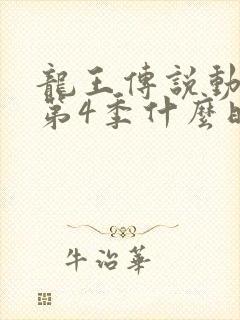 龍王傳説動
第4季什麽時
牛治華